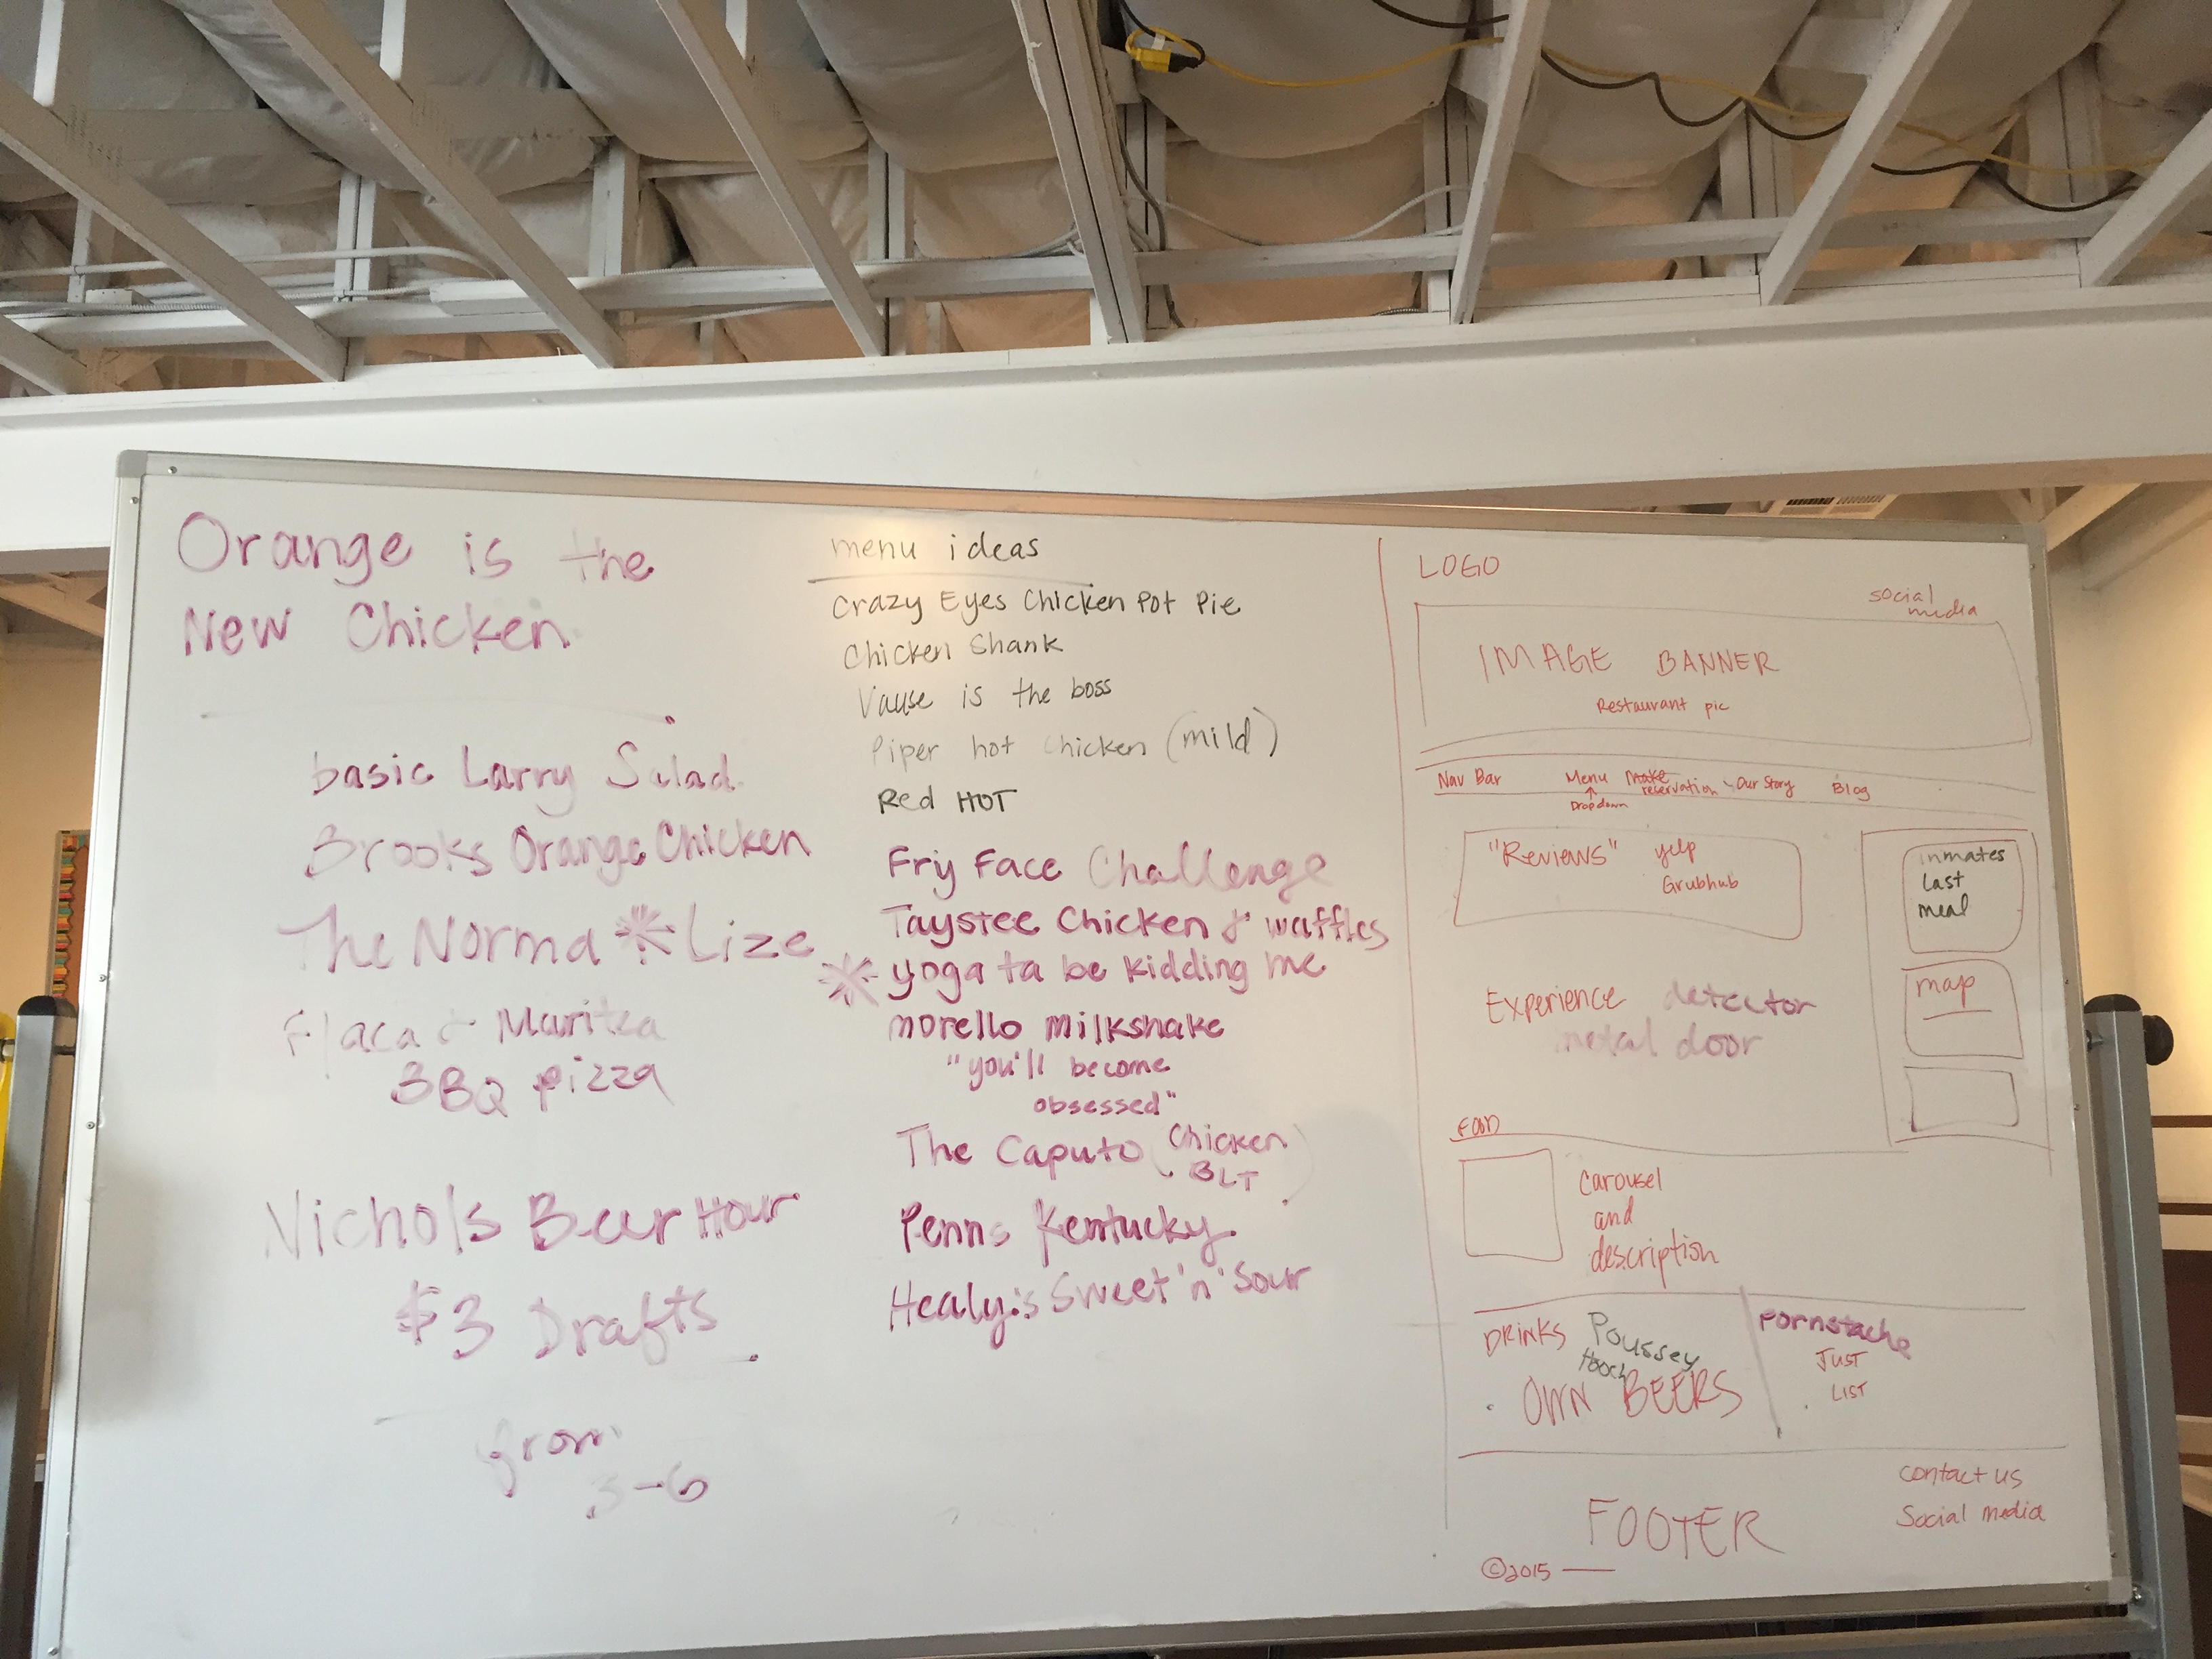 Orange is the
New Chicken
basic Larry Salad
Brooks Orange Chicken
The Norma * Lize
Flaca & Maritza
BBQ pizza
Nichols Beer Hour
$3 Drafts
from
3-6
menu ideas
Crazy Eyes Chicken Pot Pie
Chicken Shank
Vause is the boss
Piper hot chicken (mild)
Red HOT
Fry Face Challenge
Taystee Chicken & waffles
* yoga ta be kidding me
morello milkshake
"you'll become
obsessed"
The Caputo (Chicken
BLT)
Penns Kentucky
Healy's Sweet 'n' Sour
LOGO
social
media
IMAGE BANNER
Restaurant pic
Nav Bar Menu make reservation - Our Story Blog
↑
Dropdown
"Reviews" yelp
Grubhub
inmates
Last
meal
map
Experience detector
metal door
FOOD
Carousel
and
description
DRINKS Poussey
Hooch
• OWN BEERS
Pornstache
JUST
LIST
contact us
Social media
FOOTER
©2015 —